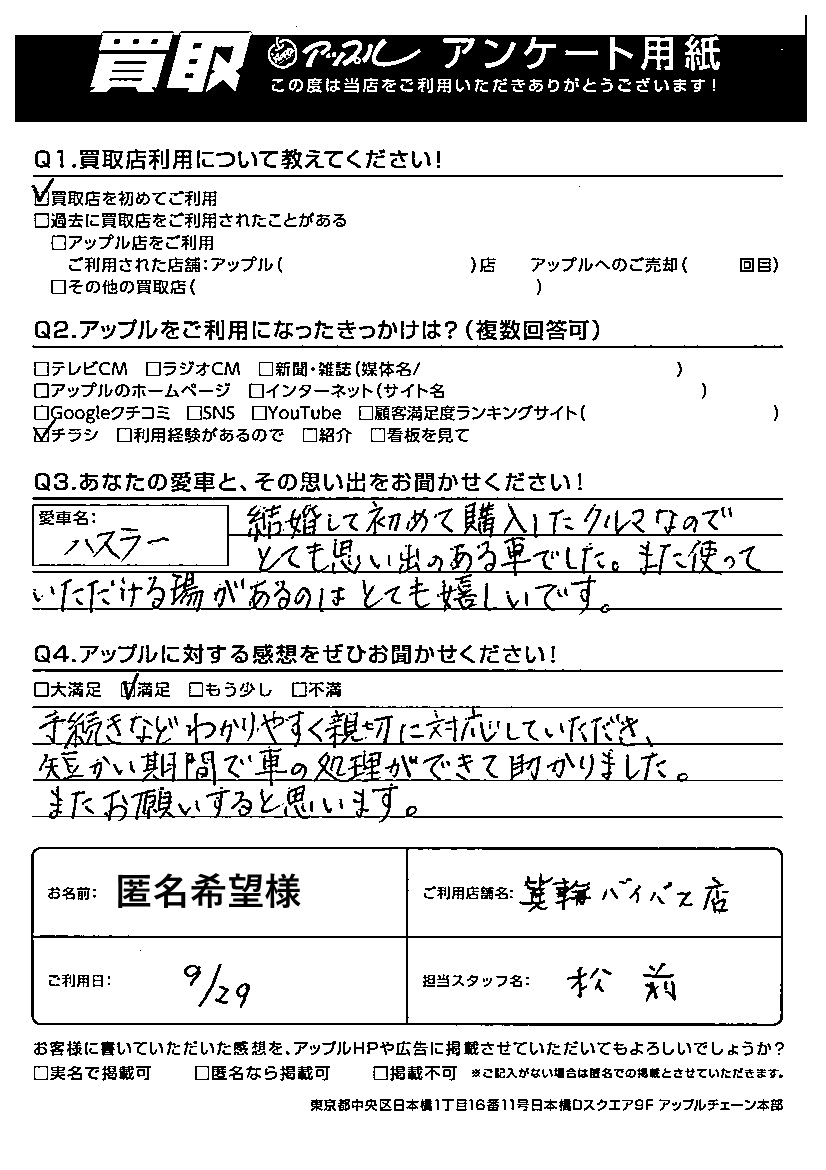 買取 アップル アンケート用紙
この度は当店をご利用いただきありがとうございます!
Q1.買取店利用について教えてください!
☑買取店を初めてご利用
□過去に買取店をご利用されたことがある
□アップル店をご利用
ご利用された店舗:アップル( )店 アップルへのご売却( 回目)
□その他の買取店( )
Q2.アップルをご利用になったきっかけは?(複数回答可)
□テレビCM □ラジオCM □新聞・雑誌(媒体名/ )
□アップルのホームページ □インターネット(サイト名 )
□Googleクチコミ □SNS □YouTube □顧客満足度ランキングサイト( )
☑チラシ □利用経験があるので □紹介 □看板を見て
Q3.あなたの愛車と、その思い出をお聞かせください!
愛車名:
ハスラー
結婚して初めて購入したクルマなので
とても思い出のある車でした。また使って
いただける場があるのはとても嬉しいです。
Q4.アップルに対する感想をぜひお聞かせください!
□大満足 ☑満足 □もう少し □不満
手続きなどわかりやすく親切に対応していただき、
短かい期間で車の処理ができて助かりました。
またお願いすると思います。
お名前: 匿名希望様
ご利用店舗名: 箕輪バイパス店
ご利用日: 9/29
担当スタッフ名: 松前
お客様に書いていただいた感想を、アップルHPや広告に掲載させていただいてもよろしいでしょうか?
□実名で掲載可 □匿名なら掲載可 □掲載不可 ※ご記入がない場合は匿名での掲載とさせていただきます。
東京都中央区日本橋1丁目16番11号日本橋Dスクエア9F アップルチェーン本部